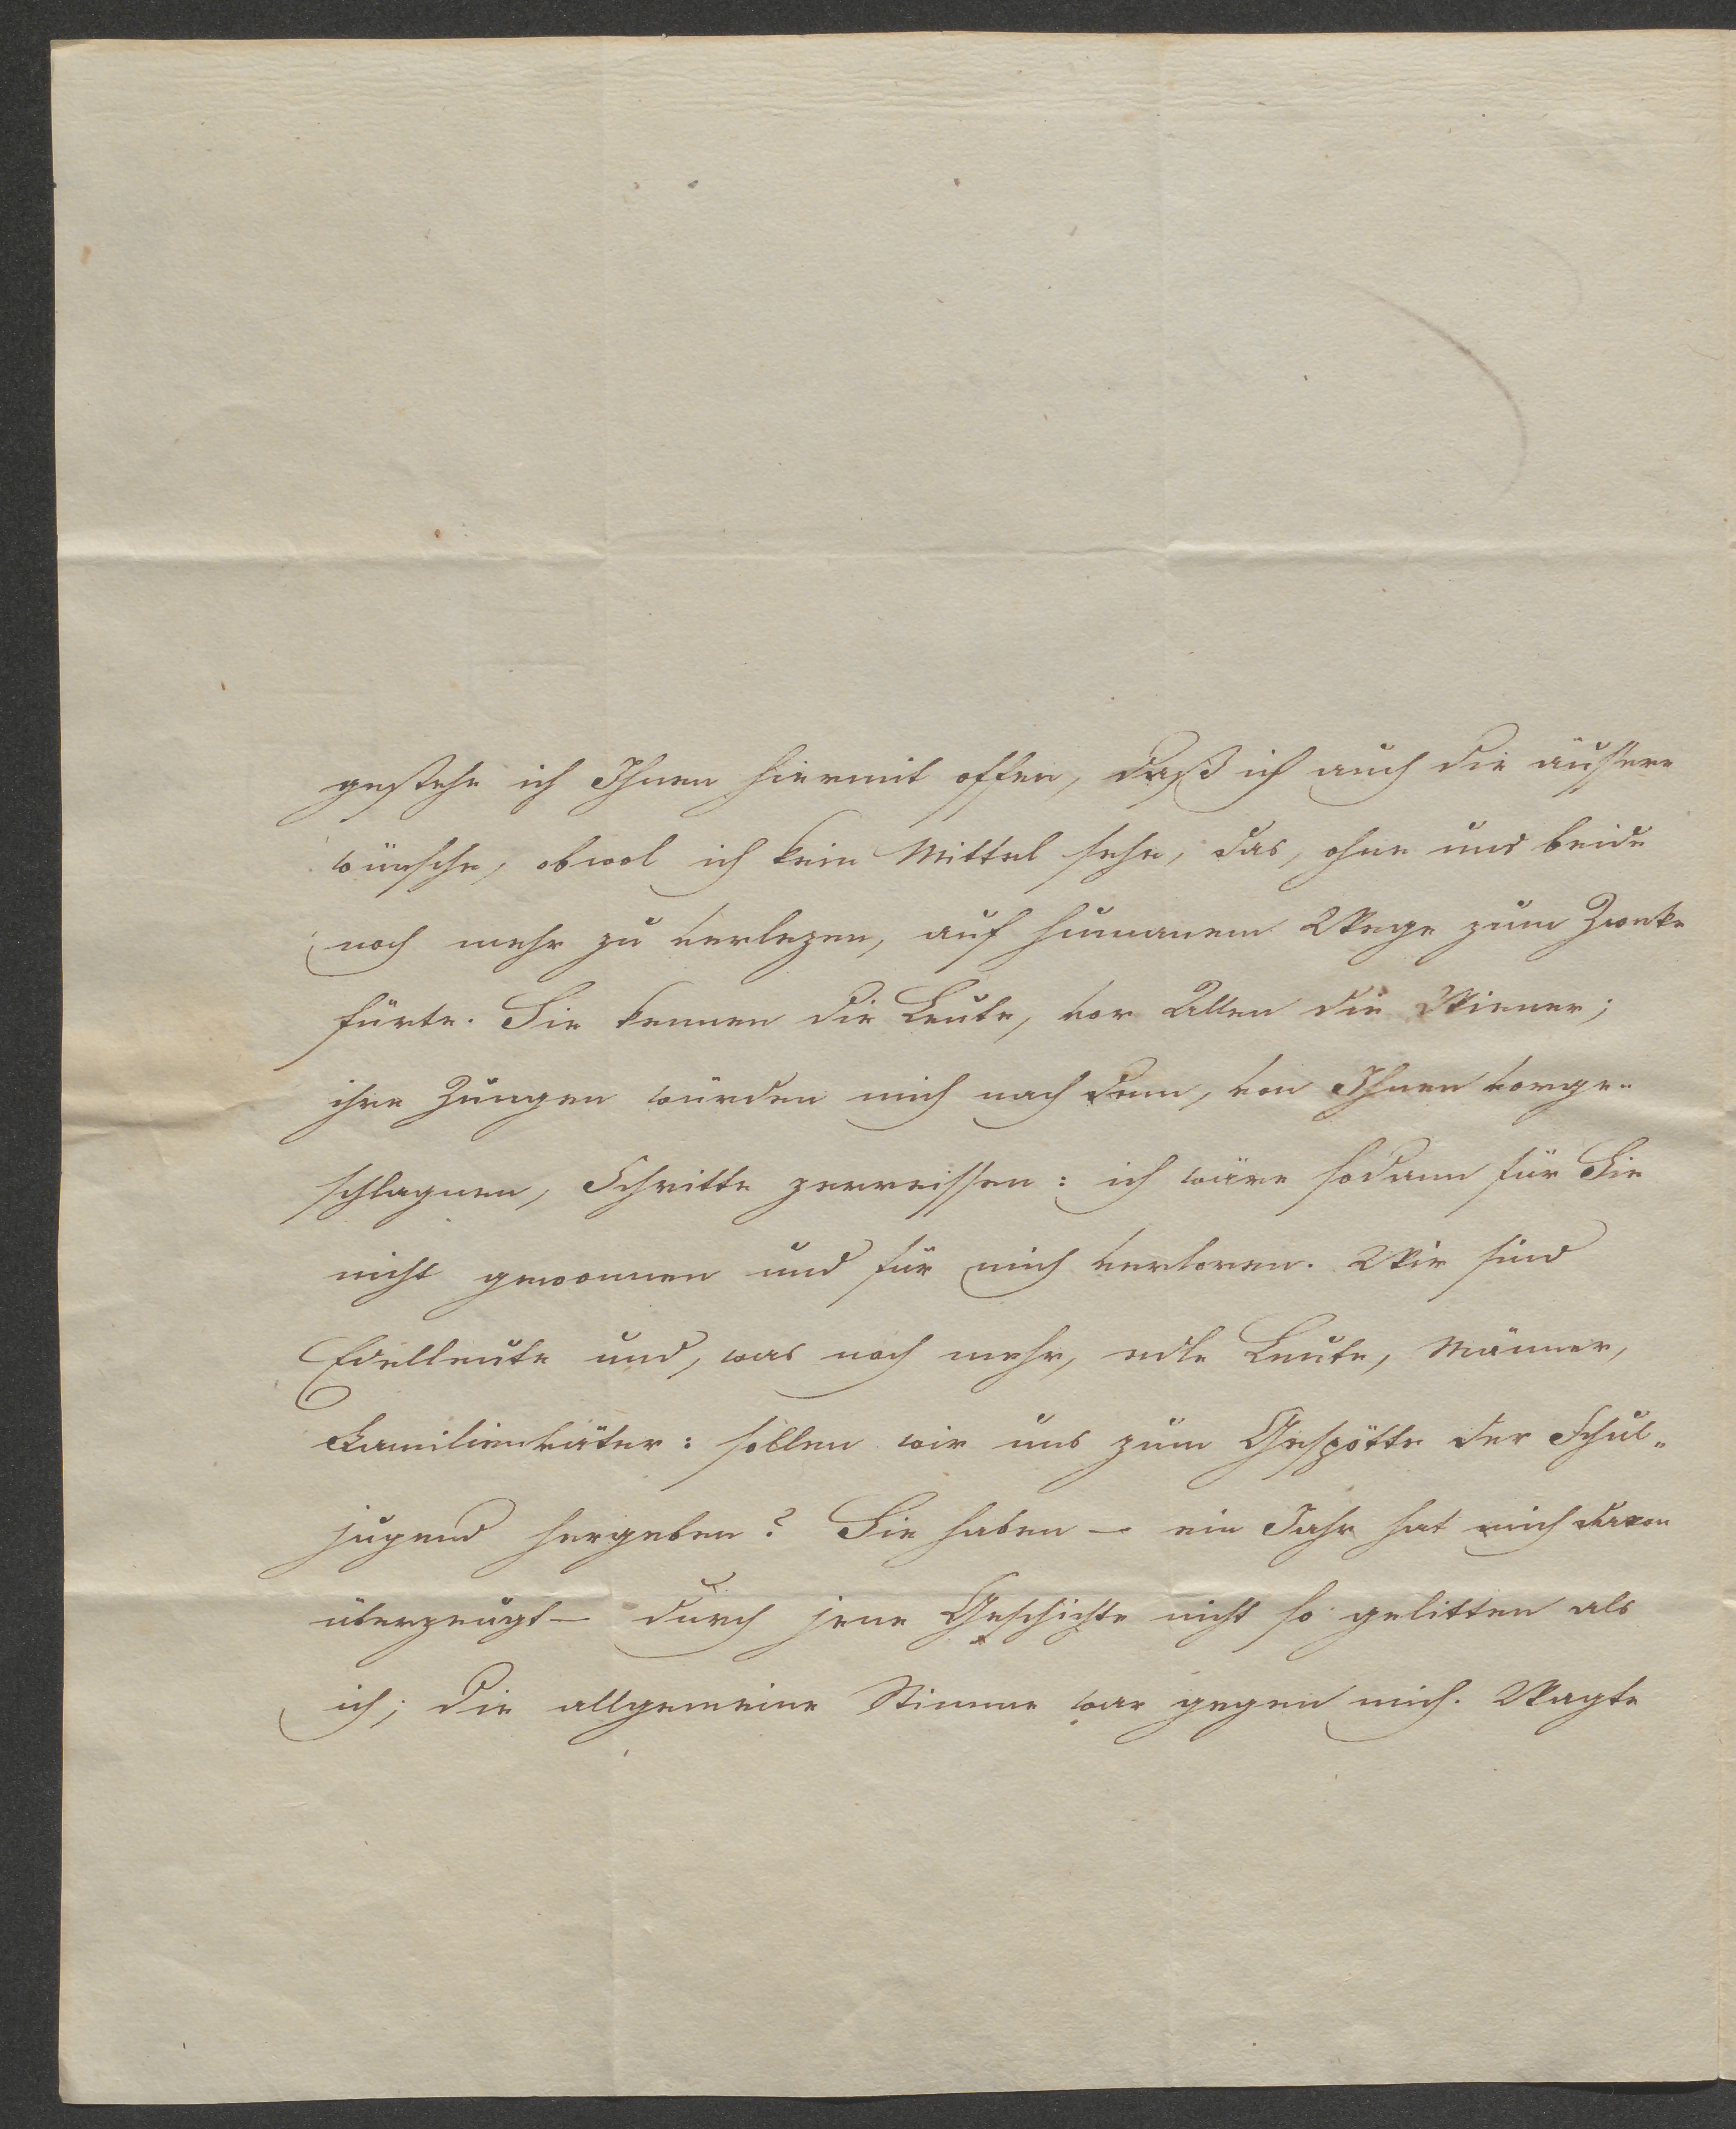 gestehe ich Ihnen hiermit offen, daß ich auch die äussere
wünsche, obwol ich kein Mittel sehe, das, ohne uns beide
noch mehr zu verlezen, auf humanem Wege zum Zweke
fürte. Sie kennen die Leute, vor Allen die Wiener;
ihre Zungen würden mich nach dem, von Ihnen vorge-
schlagnen, Schritte zerreissen: ich wäre sodann für Sie
nicht gewonnen und für mich verloren. Wir sind
Edelleute und, was noch mehr, edle Leute, Männer,
Familienväter: sollen wir uns zum Gespötte der Schul-
jugend hergeben? Sie haben — ein Jahr hat mich davon
überzeugt — durch jene Geschichte nicht so gelitten als
ich; die allgemeine Stimme war gegen mich. Wagte